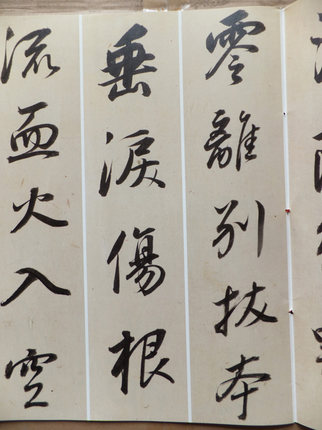 零離別拔本
垂淚傷根
流血火入空